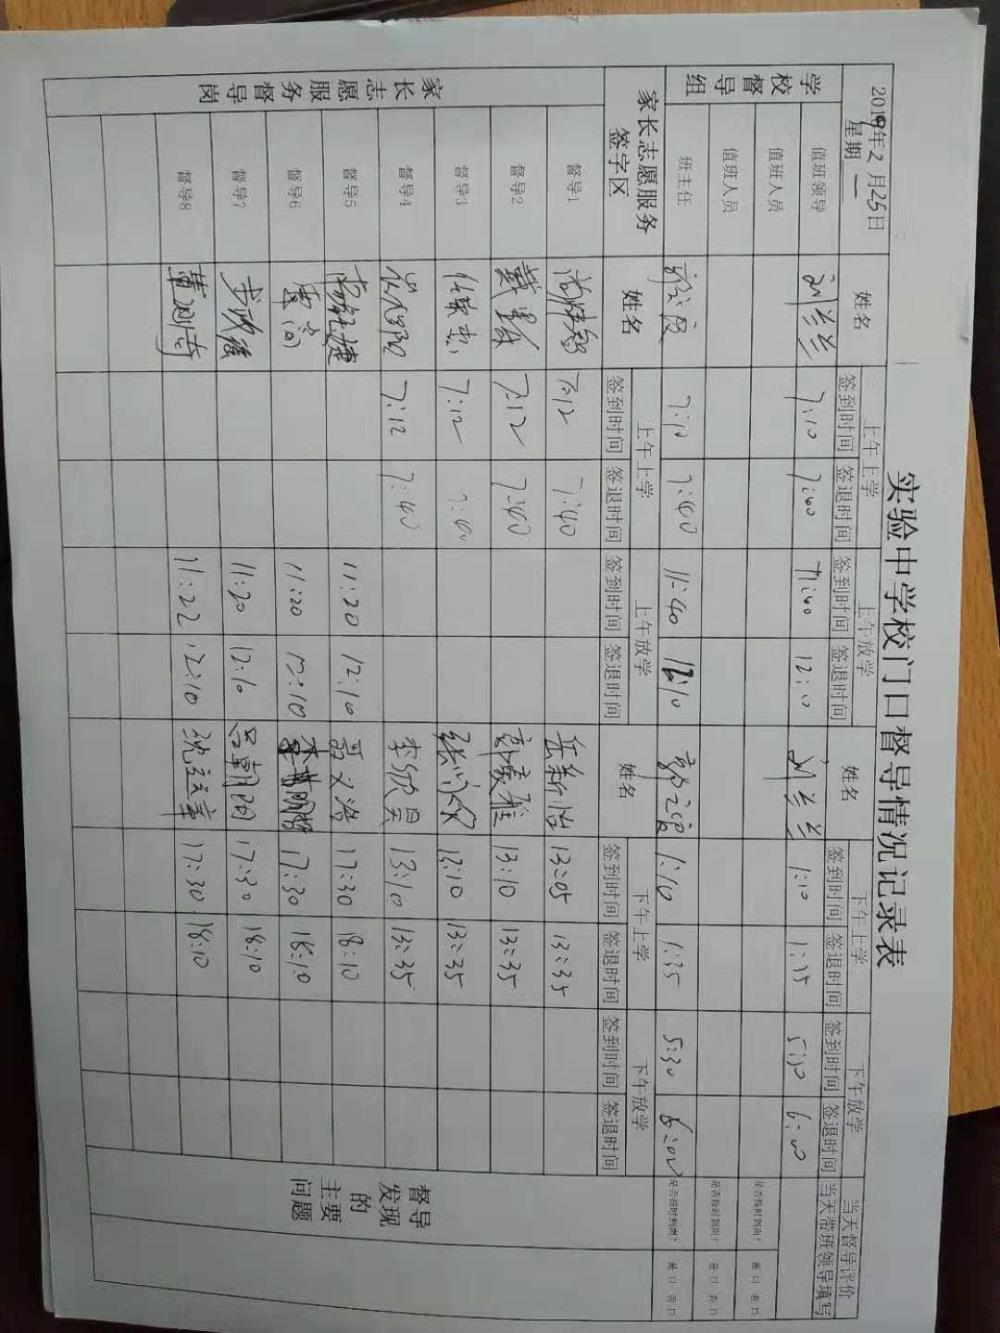 实验中学校门口督导情况记录表
2019年2月25日
星期一
姓名 上午上学 上午放学 姓名 下午上学 下午放学 当天督导评价
签到时间 签退时间 签到时间 签退时间 签到时间 签退时间 签到时间 签退时间 当天带班领导填写
学校督导组
值班领导 刘兰兰 7:10 7:40 11:40 12:10 刘兰兰 1:10 1:35 5:30 6:00
值班人员 是否按时到岗? 是口 否口
值班人员 是否按时到岗? 是口 否口
班主任 7:10 7:40 11:40 12:10 1:10 1:35 5:30 6:00 是否按时到岗? 是口 否口
家长志愿服务
签字区
姓名 上午上学 上午放学 姓名 下午上学 下午放学
签到时间 签退时间 签到时间 签退时间 签到时间 签退时间 签到时间 签退时间
家长志愿服务督导岗
督导1 7:12 7:40 岳新怡 13:05 13:35
督导2 7:12 7:40 13:10 13:35
督导3 任荣杰 7:12 7:40 13:10 13:35
督导4 7:12 7:40 李欣昊 13:10 13:35
督导5 11:20 12:10 17:30 18:10
督导6 11:20 12:10 17:30 18:10
督导7 11:20 12:10 吕朝阳 17:30 18:10
督导8 11:22 12:10 沈立章 17:30 18:10
督导
发现
的
主要
问题